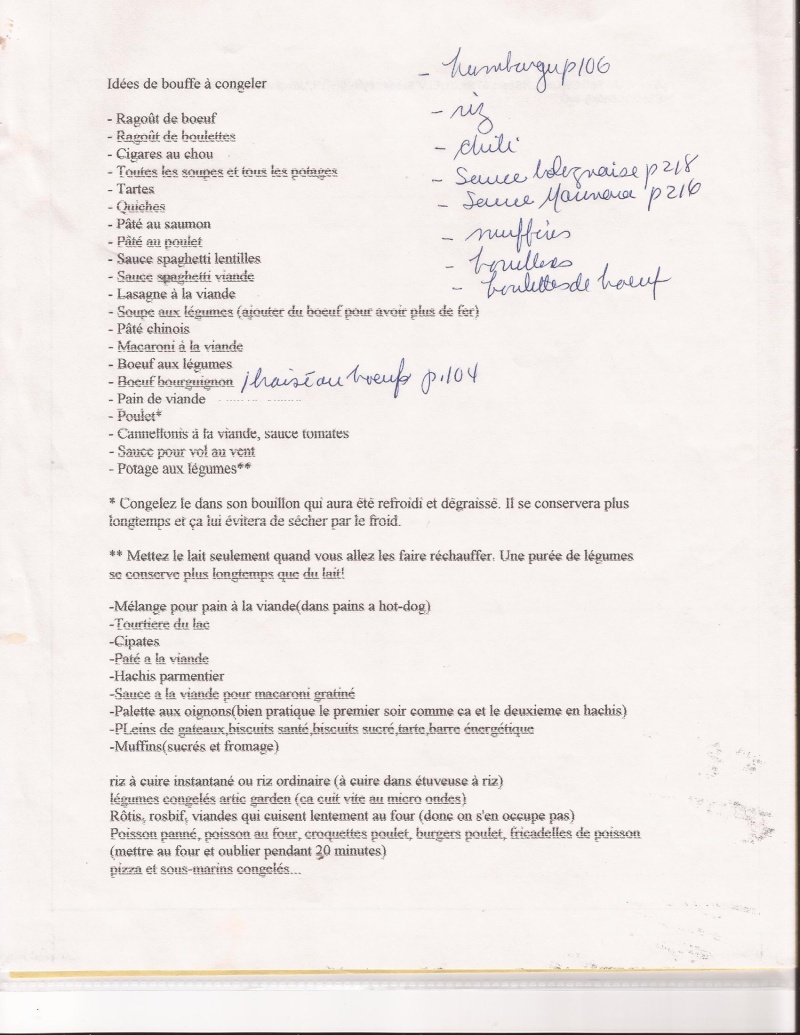 Idées de bouffe à congeler
- Ragoût de boeuf
- Ragoût de boulettes
- Cigares au chou
- Toutes les soupes et tous les potages
- Tartes
- Quiches
- Pâté au saumon
- Pâté au poulet
- Sauce spaghetti lentilles
- Sauce spaghetti viande
- Lasagne à la viande
- Soupe aux légumes (ajouter du boeuf pour avoir plus de fer)
- Pâté chinois
- Macaroni à la viande
- Boeuf aux légumes
- Boeuf bourguignon / braisé au boeuf p.104
- Pain de viande
- Poulet*
- Cannellonis à la viande, sauce tomates
- Sauce pour vol au vent
- Potage aux légumes**
- humbargu p106
- riz
- chili
- Sauce bolognaise p218
- Sauce p216
- muffins
- boulettes de boeuf
* Congelez le dans son bouillon qui aura été refroidi et dégraissé. Il se conservera plus
longtemps et ça lui évitera de sécher par le froid.
** Mettez le lait seulement quand vous allez les faire réchauffer. Une purée de légumes
se conserve plus longtemps que du lait!
-Mélange pour pain à la viande(dans pains a hot-dog)
-Tourtiere du lac
-Cipates
-Paté a la viande
-Hachis parmentier
-Sauce a la viande pour macaroni gratiné
-Palette aux oignons(bien pratique le premier soir comme ca et le deuxieme en hachis)
-PLeins de gateaux,biscuits santé,biscuits sucré,tarte,barre énergétique
-Muffins(sucrés et fromage)
riz à cuire instantané ou riz ordinaire (à cuire dans étuveuse à riz)
légumes congelés artic garden (ca cuit vite au micro ondes)
Rôtis, rosbif, viandes qui cuisent lentement au four (donc on s'en occupe pas)
Poisson panné, poisson au four, croquettes poulet, burgers poulet, fricadelles de poisson
(mettre au four et oublier pendant 20 minutes)
pizza et sous-marins congelés...